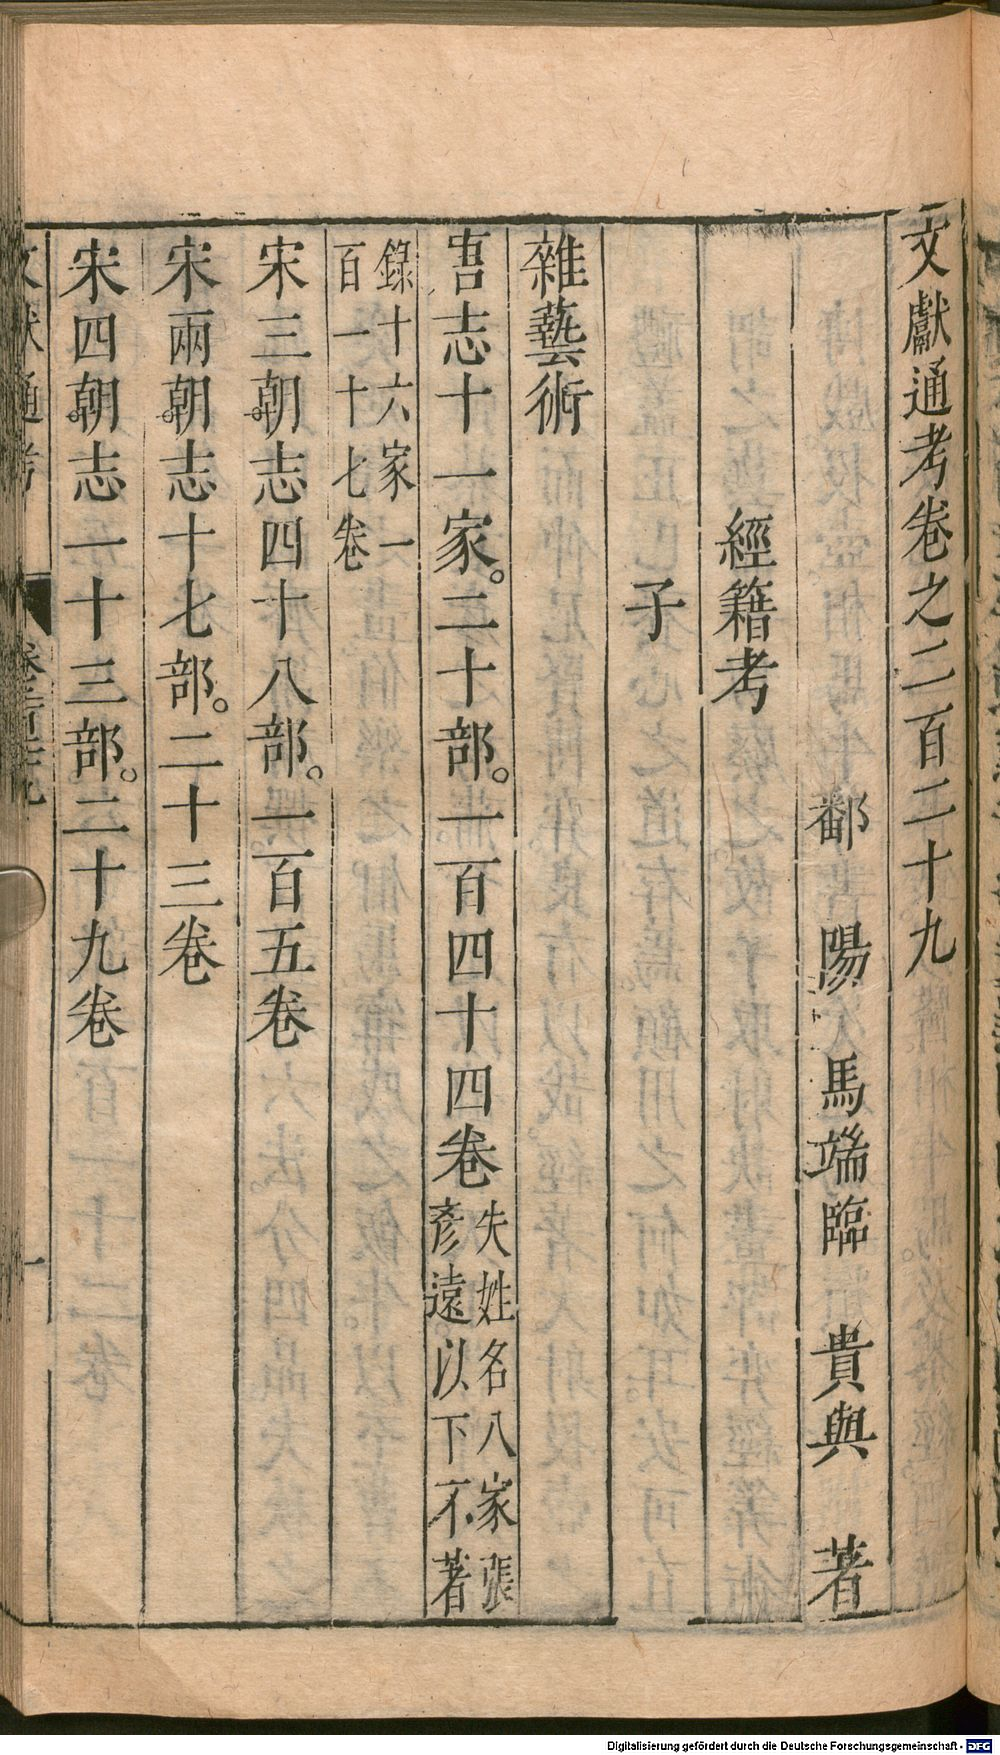 文獻通考卷之二百二十九
鄱陽馬端臨貴與著
經籍考
子
雜藝術
志十一家。二十部。一百四十四卷
失姓名八家張
彥遠以下不著
錄十六家一
百一十七卷
宋三朝志四十八部。一百五卷
宋兩朝志十七部。二十三卷
宋四朝志一十三部。二十九卷
文獻通考
一
Digitalisierung gefördert durch die Deutsche Forschungsgemeinschaft - DFG